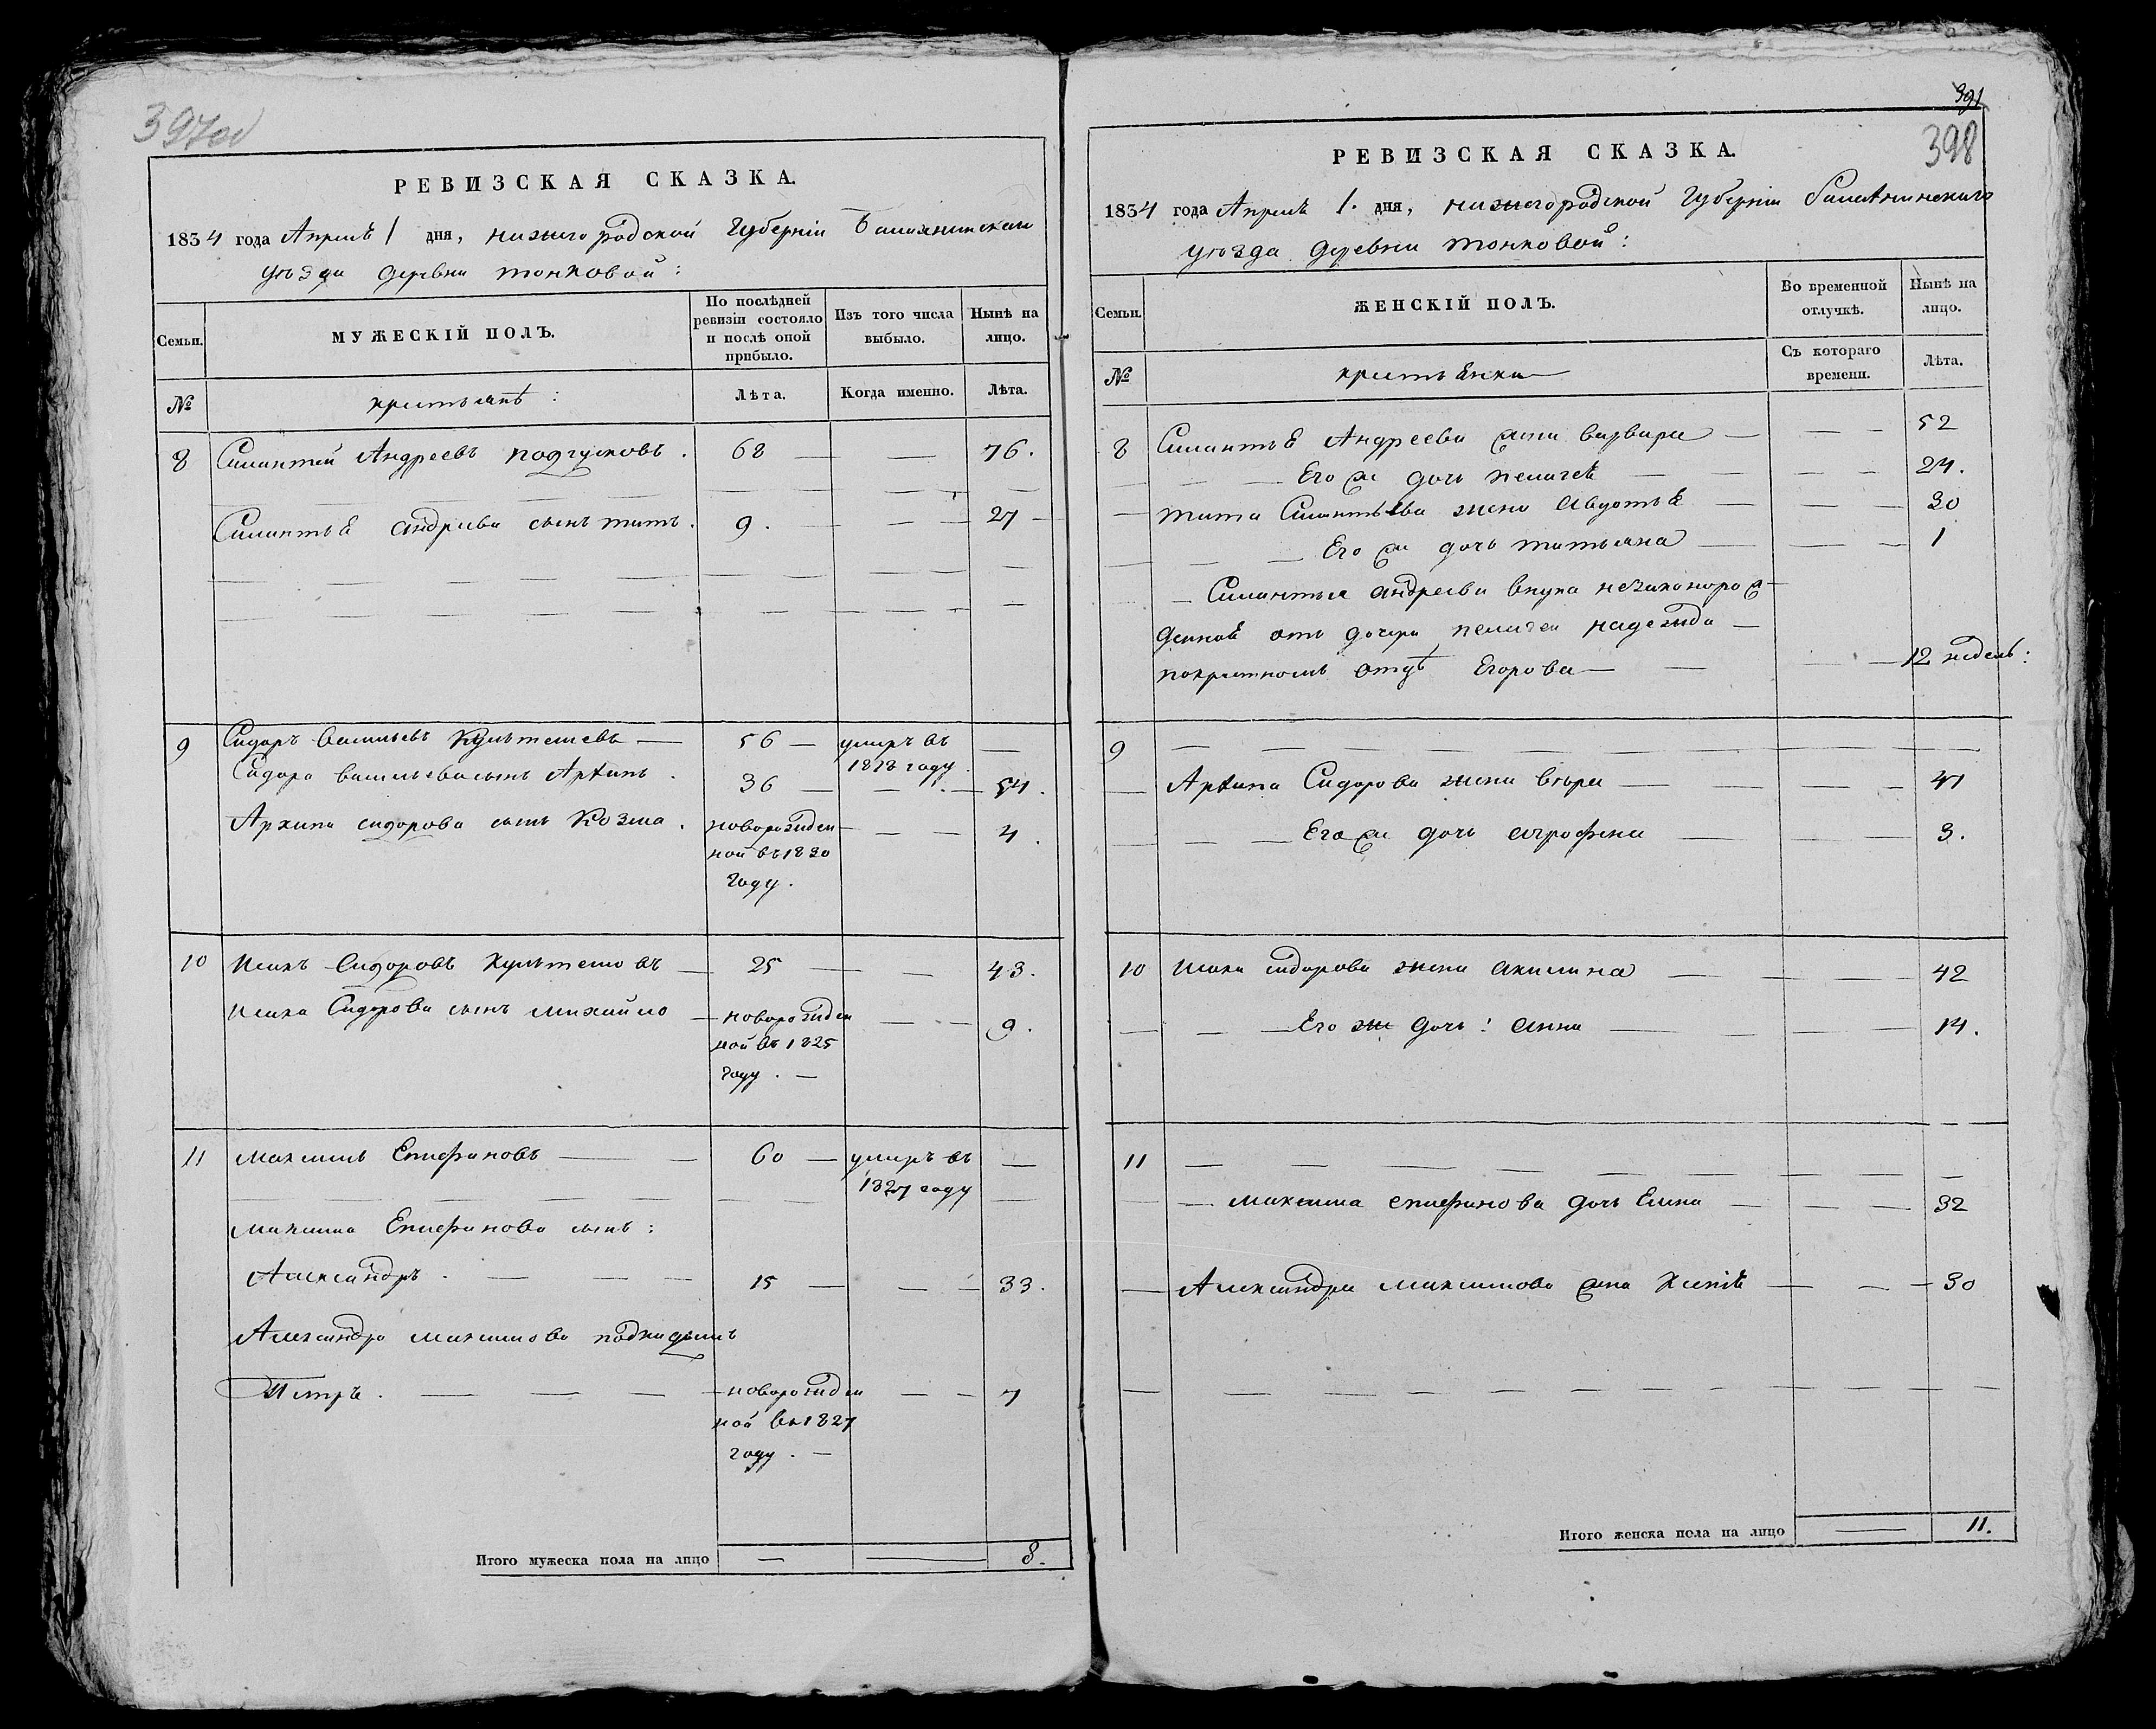 397об
РЕВИЗСКАЯ СКАЗКА.
1834 года Апреля 1 дня, нижегородской Губернiи Балахнинскаго
уѣзда деревни тонковой:
Семьи.
МУЖЕСКІЙ ПОЛЪ.
По послѣдней ревизіи состояло и послѣ оной прибыло.
Изъ того числа выбыло.
Нынѣ на лицо.
№
крестьянѣ:
Лѣта.
Когда именно.
Лѣта.
8 Силантей Андреевъ подгусковъ. 68 — — 76.
Силантья андреева сынъ титъ. 9. — — 27
9 Сидоръ Васильевъ — 56 — умеръ въ 1818 году —
Сидора васильева сынъ Архипъ. 36 — — 54.
Архипа сидорова сынъ Козма. новорожден — — 4.
ной въ 1830
году.
10 Исакъ Сидоровъ — 25 — — 43.
Исака Сидорова сынъ михайло — новорожден — — 9.
ной въ 1825
году. —
11 максимъ Епифановъ — 60 — умеръ въ 1827 году —
максима Епифанова сынъ:
Александръ. — 15 — — 33.
Александра максимова подкидышъ
Петръ. — новорожден — — 7
ной въ 1827
году. —
Итого мужеска пола на лицо — — 8.
391
398
РЕВИЗСКАЯ СКАЗКА.
1834 года Апреля 1. дня, нижегородской Губернiи балахнинскаго
уѣзда деревни тонковой:
Семьи.
ЖЕНСКІЙ ПОЛЪ.
Во временной отлучкѣ.
Нынѣ на лицо.
№
крестьянки
Съ котораго времени.
Лѣта.
8 Силантья Андреева жена варвара — — 52
Его же дочь пелагея — — 24.
тита Силантьева жена Авдотья — — 30
Его же дочь татьяна — — 1
Силантья андреева внука незаконорож
денная отъ дочери пелагеи надежда —
покрестномъ отцѣ Егорова — — 12 недель:
9 — — —
Архипа Сидорова жена вѣра — — 41
Его же дочь аграфена — — 3.
10 Исака сидорова жена акилина — — 42
Его же дочь: анна — — 14.
11 — — —
максима епифанова дочь Елена — — 32
Александра максимова жена — — 30
Итого женска пола на лицо — 11.